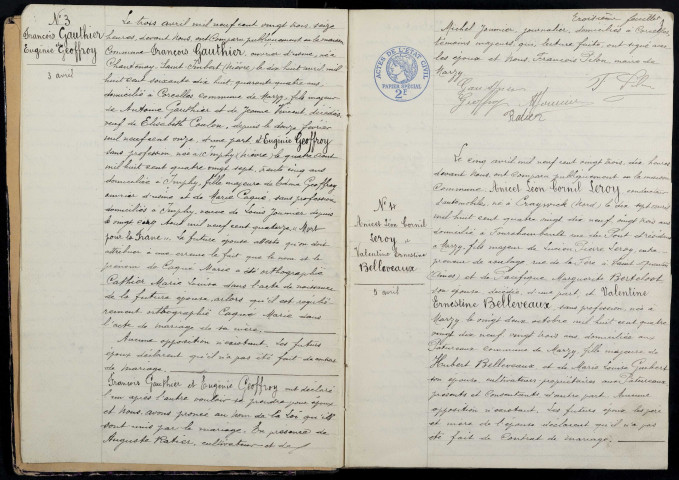 N° 3
François Gauthier
Eugénie Geoffroy
3 avril
Le trois avril mil neuf cent vingt trois, seize
heures, devant nous, ont comparu publiquement en la maison
Commune François Gauthier, ouvrier d'usine, né à
Chantenay Saint Imbert, Nièvre, le dix huit avril mil
huit cent soixante dix huit, quarante quatre ans,
domicilié à Corcelles commune de Marzy, fils majeur
de Antoine Gauthier et de Jeanne Vincent décédés,
veuf de Elisabeth Coulon, depuis le douze février
mil neuf cent onze, d'une part, et Eugénie Geoffroy
sans profession, née à Imphy (Nièvre) le quatre août
mil huit cent quatre vingt sept, trente cinq ans
domiciliée à Imphy, fille majeure de Geoffroy
ouvrier d'usine et de Marie Caqué, sans profession
domiciliés à Imphy, veuve de Louis Jeunier depuis
le vingt août mil neuf cent quatorze "Mort
pour la France". La future épouse atteste qu'on doit
attribuer à une erreur le fait que le nom et le
prénom de Caqué Marie a été orthographié
Cathier Marie Louise dans l'acte de naissance
de la future épouse, alors qu'il est régulièrement
orthographié Caqué Marie dans
l'acte de mariage de sa mère.
Aucune opposition n'existant. Les futurs
époux déclarent qu'il n'a pas été fait de contrat
de mariage.
François Gauthier et Eugénie Geoffroy ont déclaré
l'un après l'autre vouloir se prendre pour époux
et Nous, avons prononcé au nom de la Loi qu'ils
sont unis par le mariage. En présence de
Auguste Ratier, cultivateur et de
Troisième feuillet
Michel Jaumier, journalier, domiciliés à Corcelles
témoins majeurs, qui, lecture faite, ont signé avec
les époux et Nous, François Pilon, maire de
Marzy.
Gauthier
Geoffroy
Ratier
ACTES DE L'ÉTAT CIVIL
PAPIER SPÉCIAL
2F
N° 4
Amicet Léon Cornil
Leroy
et
Valentine Ernestine
Belleveaux
5 avril
Le cinq avril mil neuf cent vingt trois, dix heures
devant Nous ont comparu publiquement en la maison
Commune Amicet Léon Cornil Leroy, conducteur
d'automobiles, né à Craywick (Nord), le dix sept mars
mil huit cent quatre vingt dix neuf, vingt trois ans
domicilié à Fourchambault rue du Pont et résidant
à Marzy, fils majeur de Pierre Leroy, entrepreneur
de roulage rue de la Fère, à Saint Quentin
(Aisne) et de Pacifique Marguerite Berteloot
son épouse décédée, d'une part, et Valentine
Ernestine Belleveaux, sans profession, née à
Marzy le vingt deux octobre mil huit cent quatre
vingt dix neuf, vingt trois ans, domiciliée aux
Patureaux commune de Marzy, fille majeure de
Hubert Belleveaux et de Marie Louise Guibert
son épouse, cultivateurs propriétaires aux Patureaux
présents et consentants, d'autre part. Aucune
opposition n'existant. Les futurs époux, les père
et mère de l'épouse déclarent qu'il n'a pas
été fait de contrat de mariage.